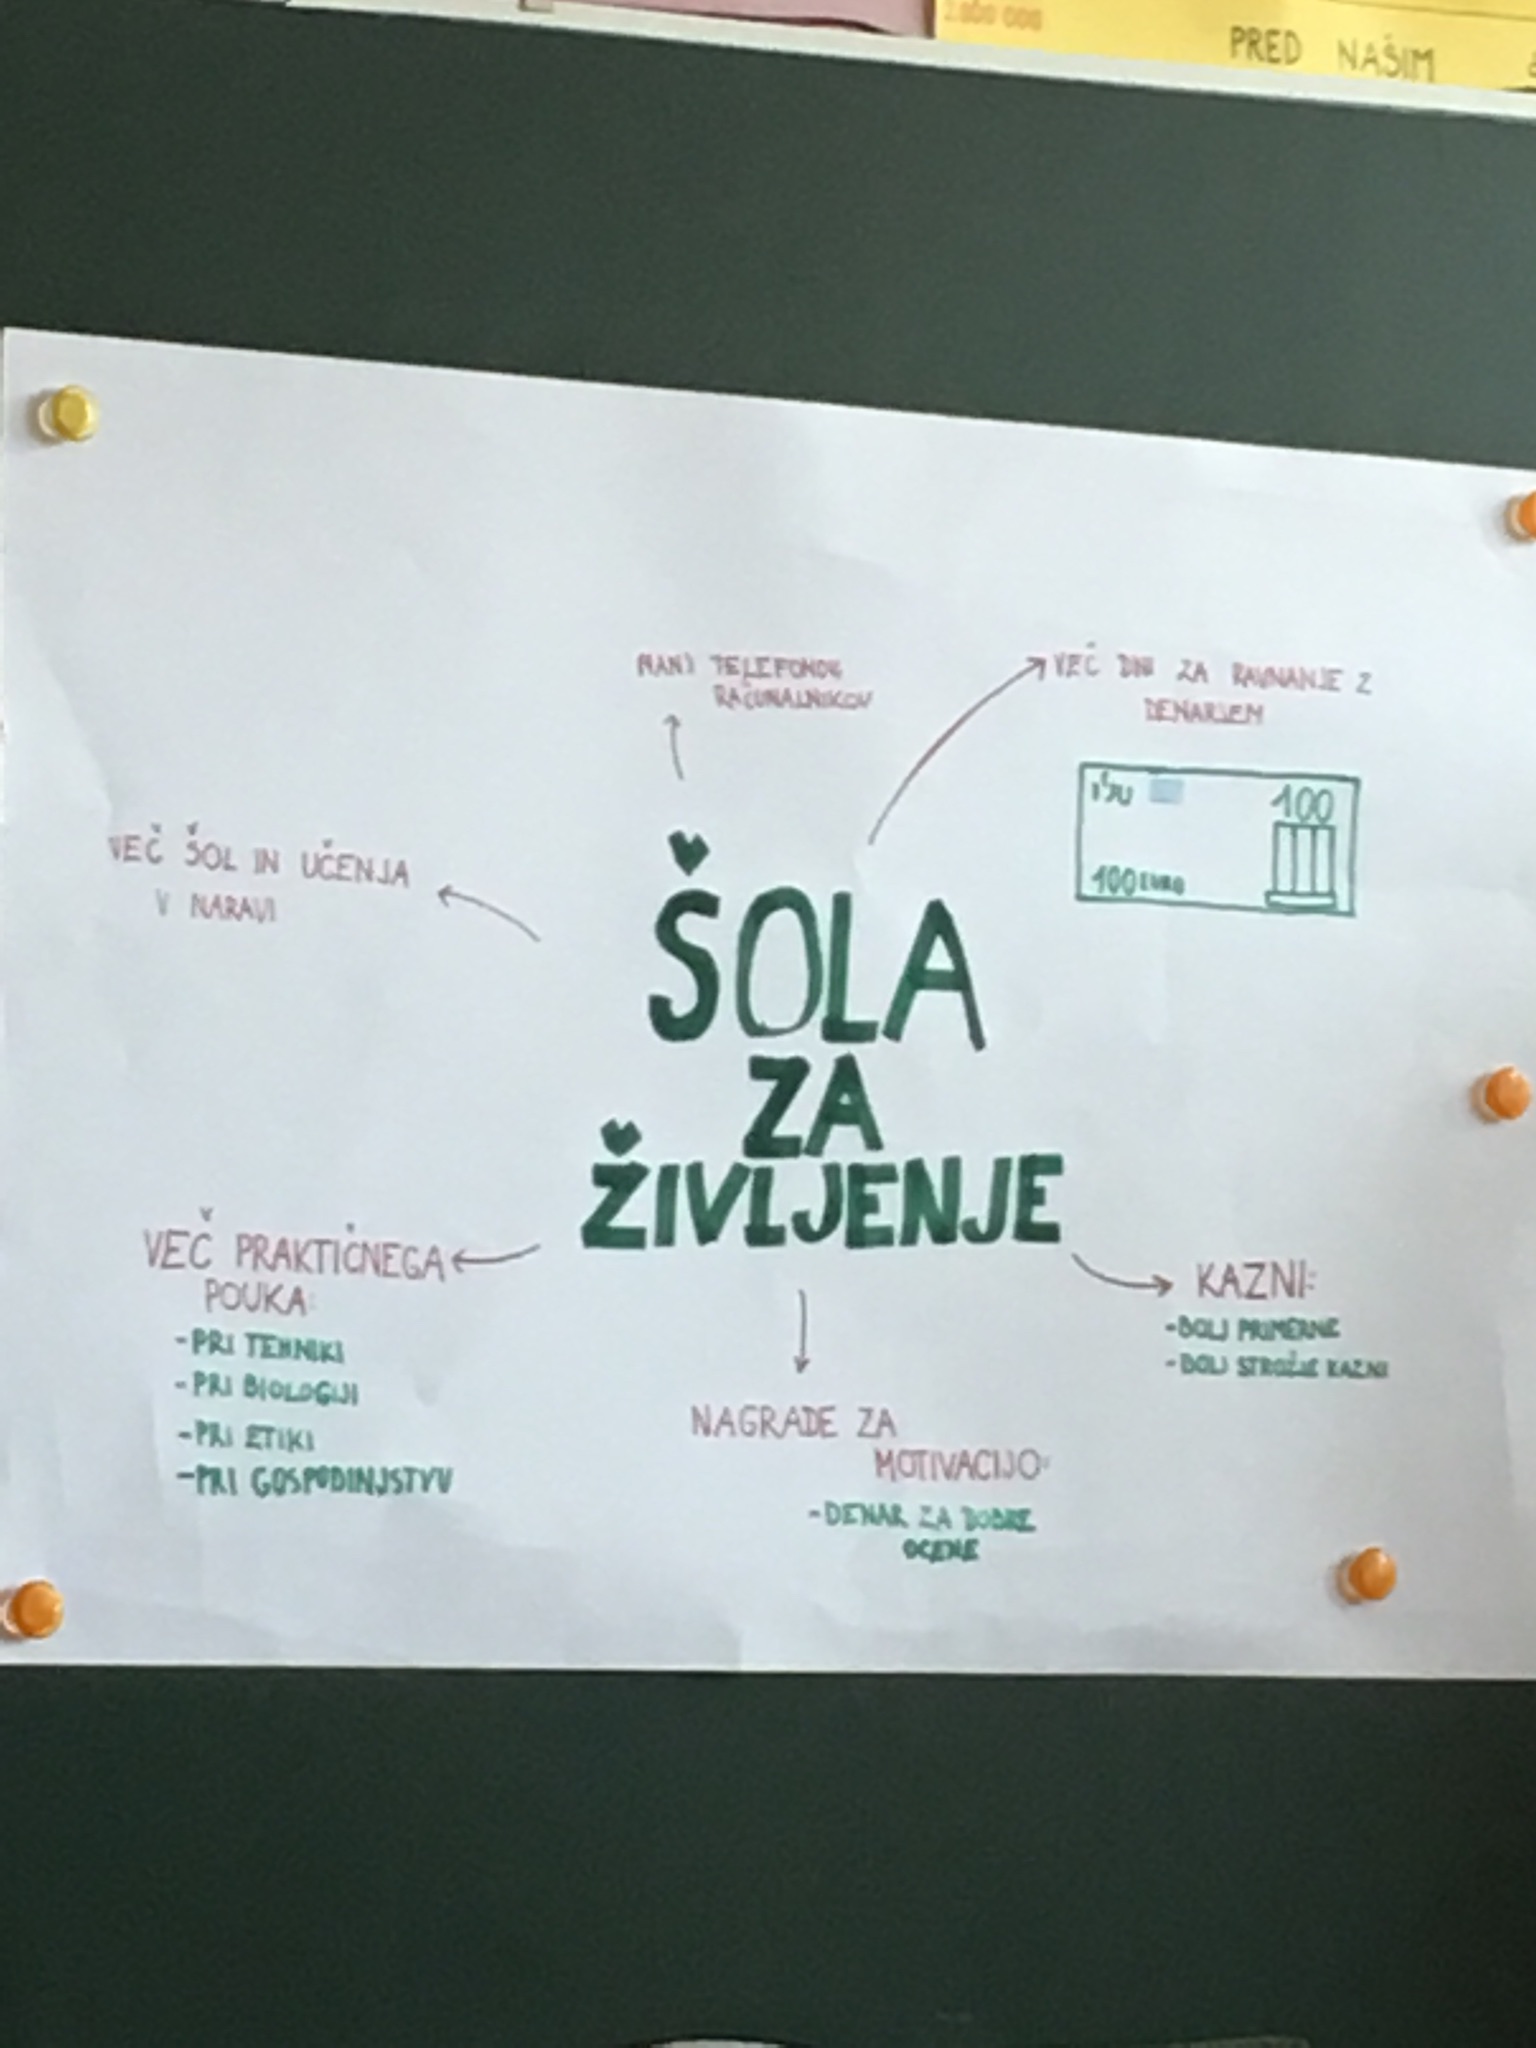 2 800 000
PRED NAŠIM
MANJ TELEFONOV
RAČUNALNIKOV
VEČ DNI ZA RAVNANJE Z
DENARJEM
100
100 EURO
VEČ ŠOL IN UČENJA
V NARAVI
ŠOLA
ZA
ŽIVLJENJE
VEČ PRAKTIČNEGA
POUKA:
-PRI TEHNIKI
-PRI BIOLOGIJI
-PRI ETIKI
-PRI GOSPODINJSTVU
NAGRADE ZA
MOTIVACIJO:
-DENAR ZA DOBRE
OCENE
KAZNI:
-BOLJ PRIMERNE
-BOLJ STROŽJE KAZNI